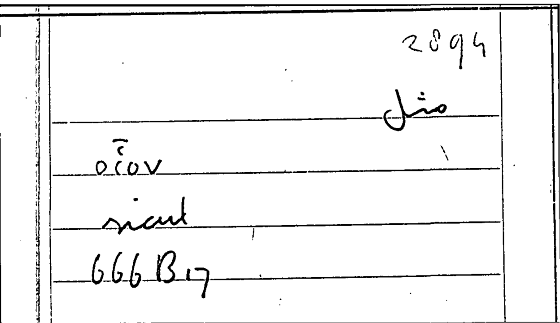 2894
مثل
οἷον
sicut
666 B 17